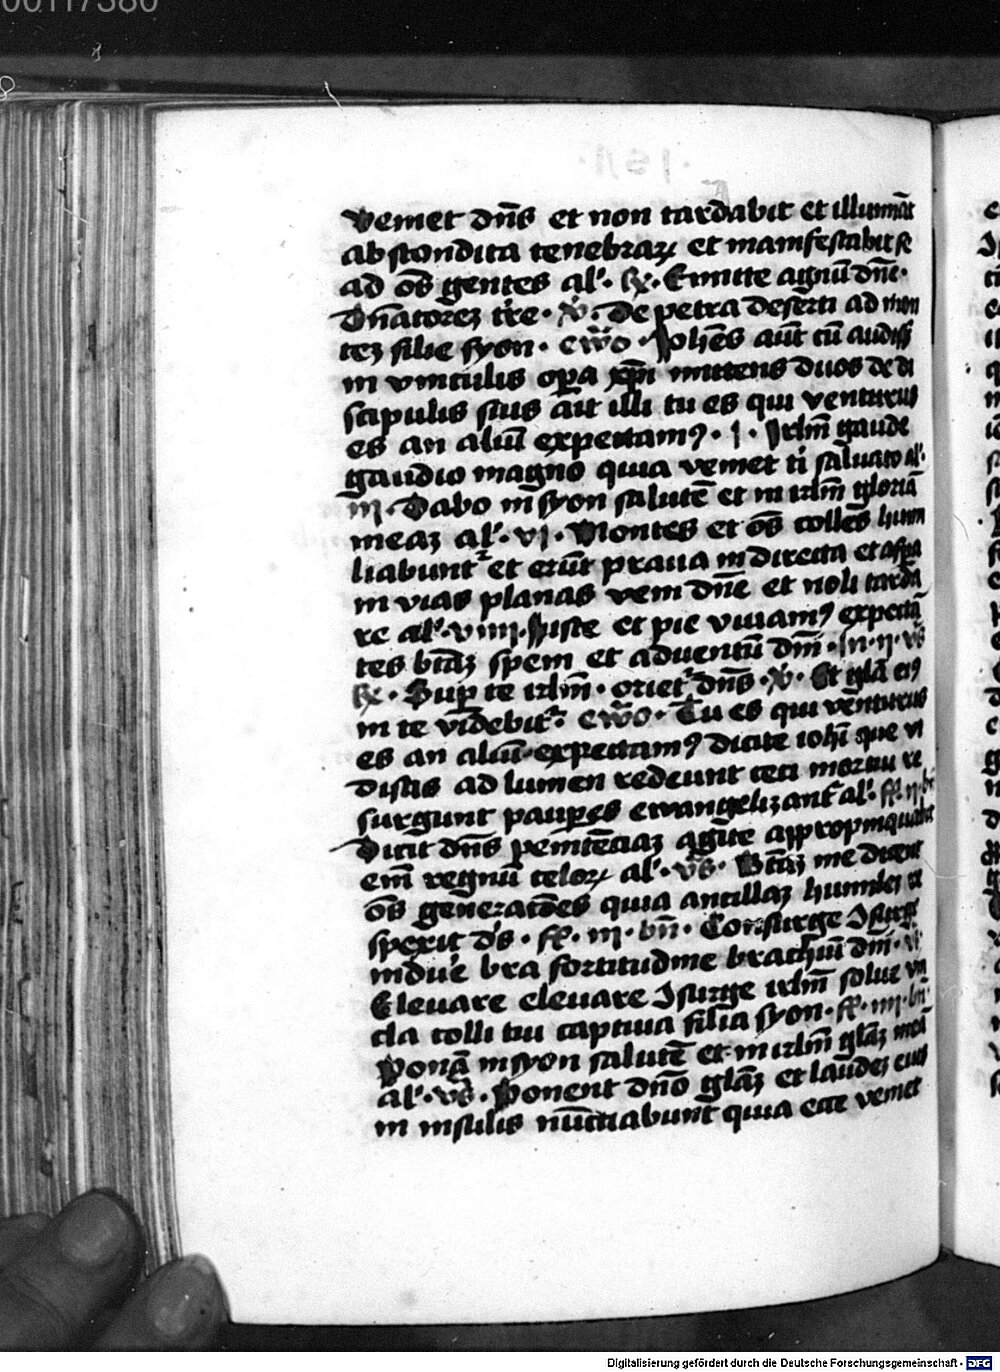 00117380
veniet dn̄s et non tardabit et illumīāt
abscondita tenebraꝝ et manifestabit se
ad oēs gentes al'. ℟. Emitte agnū dnē.
Dn̄atorem t're. v̄. De petra deserti ad mon
tem filie syon. ewō. Joh̄es aūt cū audiss
in vinculis opa xp̄i mittens duos de di
scipulis suis ait illi tu es qui venturus
es an aliū expectamꝰ. i. Jrlm̄ gaude
gaudio magno quia veniet ti saluator al'.
iij. Dabo in syon salutē et in irlm̄ gloriā
meam al'. vj. Montes et oēs colles hum
liabunt᷑ et erūt praua in directa et aspa
in vias planas veni dnē et noli tarda
re al'. viiij. Juste et pie viuamꝰ expectā
tes btām spem et aduentū dnī. In ij. vs̄
℟. Sup te irlm̄. oriet᷑ dn̄s. v̄. Et glā eiꝰ
in te videbit᷑. ewō. Tu es qui venturus
es an aliū expectamꝰ dicite iohī que vi
distis ad lumen redeunt ceci mortui re
surgunt paupes ewangelizant᷑ al'. fr̄. ij. bn̄
Dicit dn̄s penitēciam agite appropinquabit
enī regnū celoꝝ al'. vs̄. Btām me dicent
oēs generacōes quia ancillam humilem re
spexit ds̄. fr̄. iij. bn̄. Consurge Jsurge
induere bra fortitudine brachiū dnī. v̄
Eleuare eleuare Jsurge irlm̄ solue vin
cla colli tui captiua filia syon. fr̄. iiij. bn̄.
Ponā in syon salutē et in irlm̄ glām meā
al'. vs̄. Ponent dn̄o glām et laudem eius
in insulis nūctiabunt quia ecce veniet
Digitalisierung gefördert durch die Deutsche Forschungsgemeinschaft - DFG